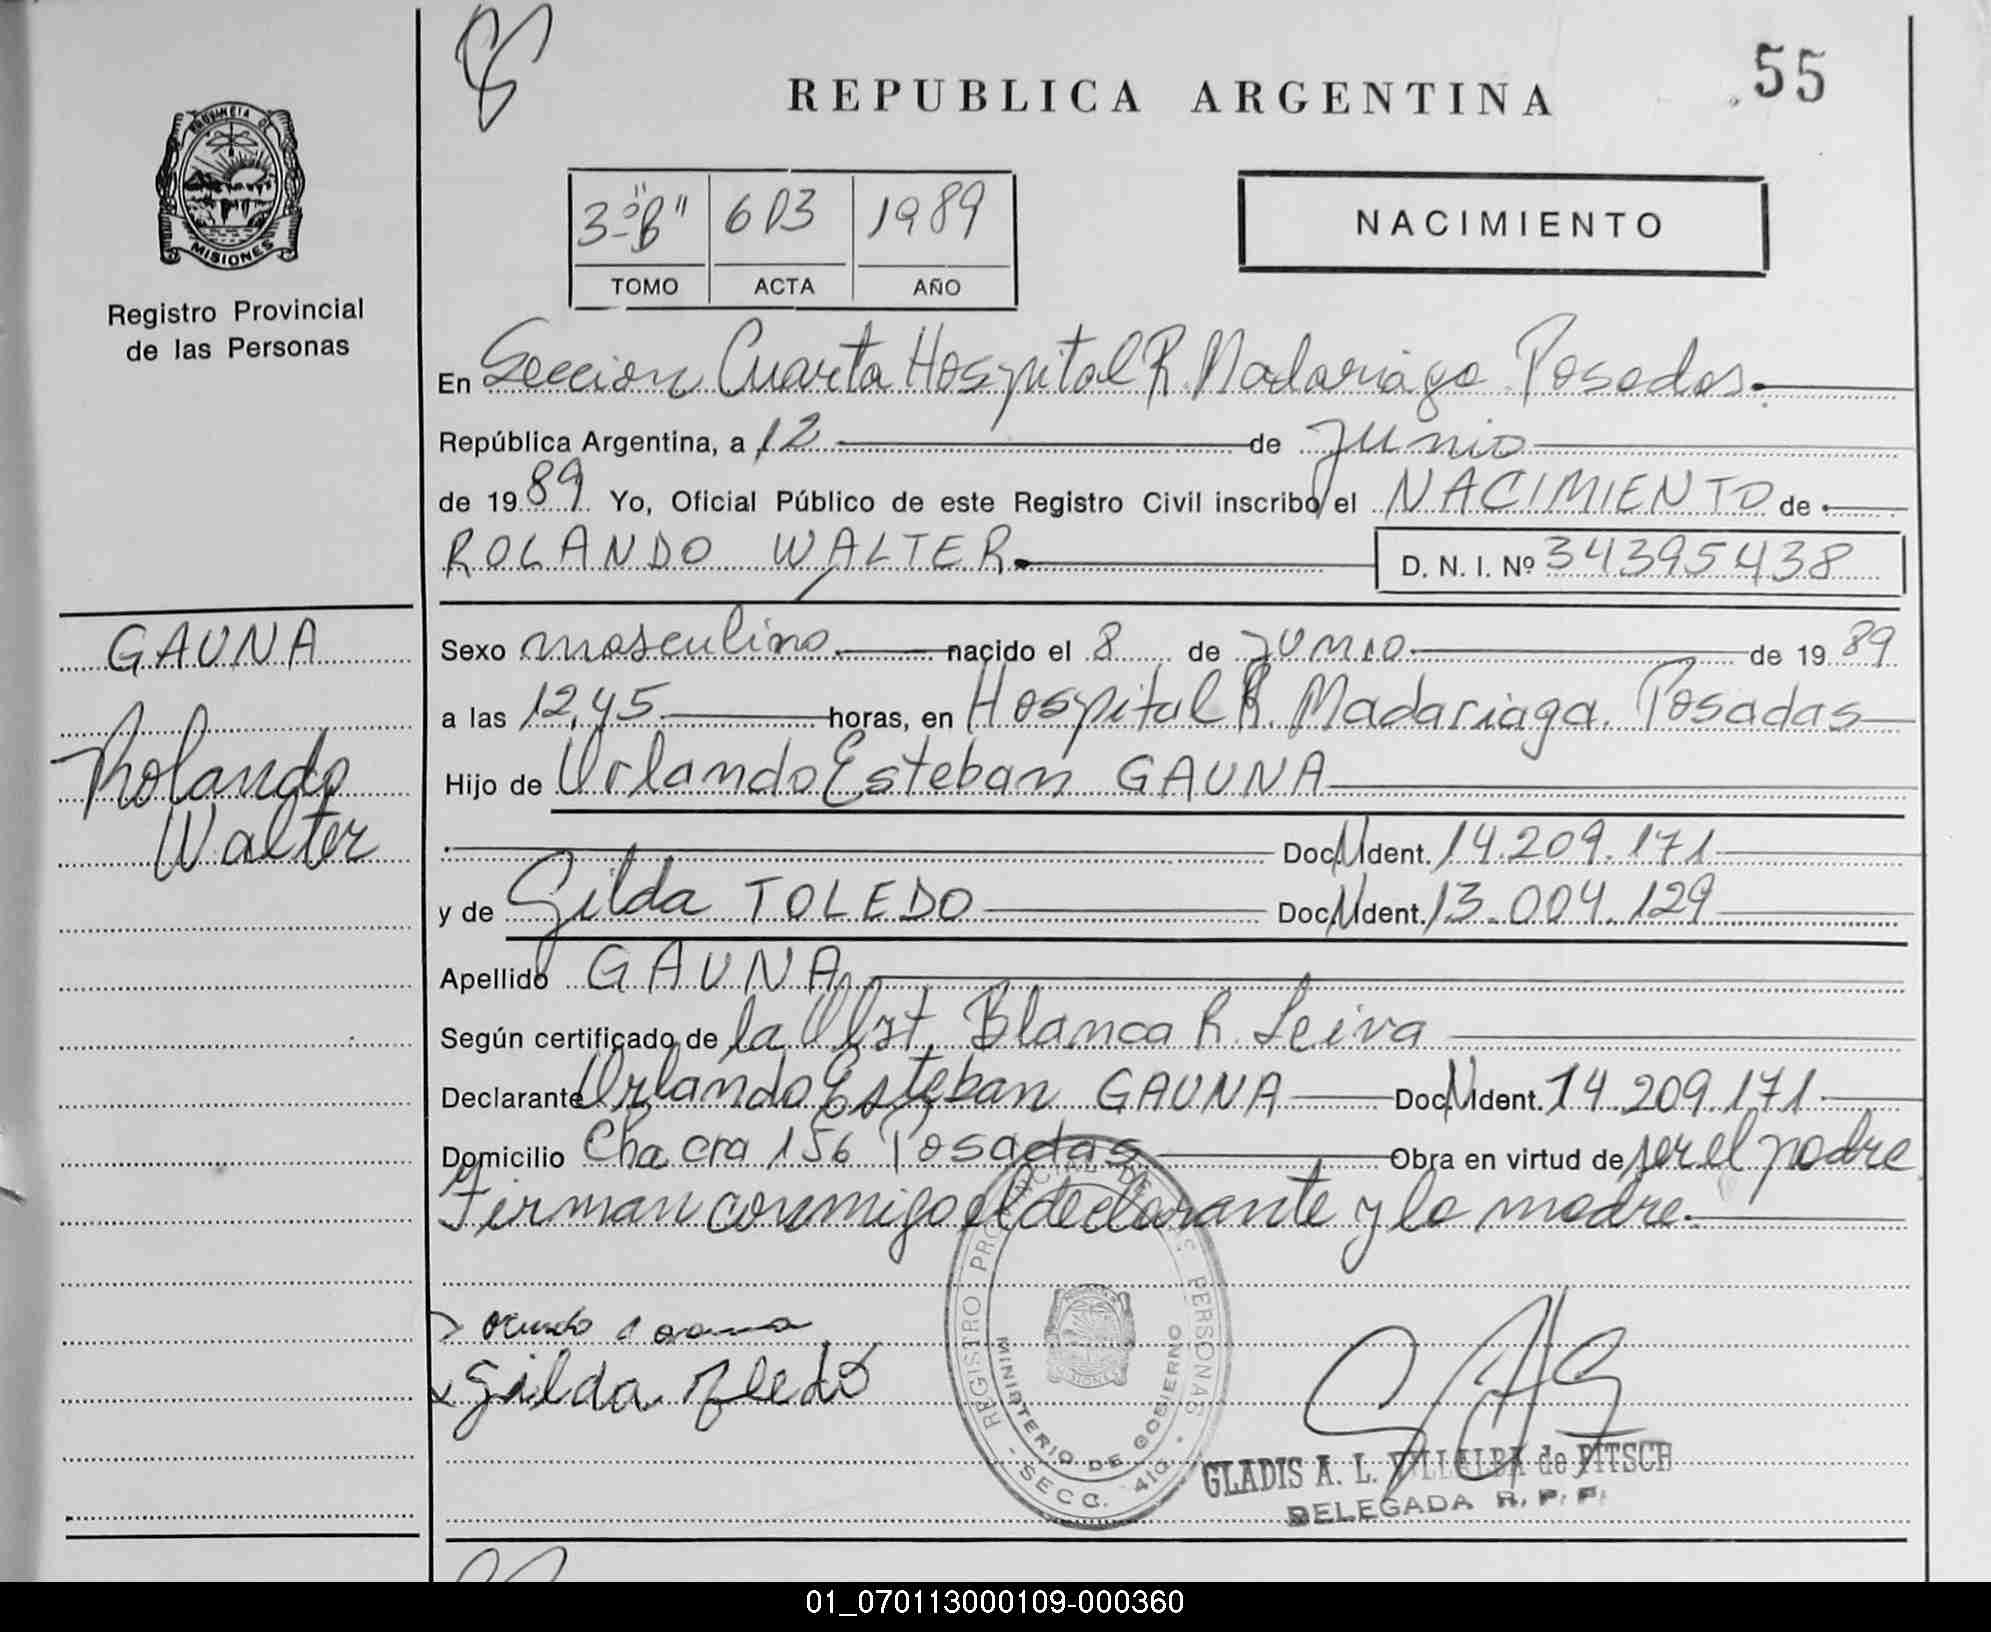 REPUBLICA ARGENTINA
55
PROVINCIA DE
MISIONES
Registro Provincial
de las Personas
3º "B" 603 1989
TOMO ACTA AÑO
NACIMIENTO
En Seccion Cuarta Hospital R. Madariaga Posadas.
República Argentina, a 12 de Junio
de 1989 Yo, Oficial Público de este Registro Civil inscribo el NACIMIENTO de
ROLANDO WALTER D. N. I. Nº 34395438
GAUNA
Rolando
Walter
Sexo masculino nacido el 8 de Junio de 1989
a las 12,45 horas, en Hospital R. Madariaga. Posadas
Hijo de Orlando Esteban GAUNA
Doc. N Ident. 14.209.171
y de Gilda TOLEDO Doc. N Ident. 13.004.129
Apellido GAUNA
Según certificado de la Obst. Blanca R. Leiva
Declarante Orlando Esteban GAUNA Doc. N Ident. 14.209.171
Domicilio Chacra 156 Posadas Obra en virtud de ser el padre
Firman conmigo el declarante y la madre.
Gilda Toledo
REGISTRO PROVINCIAL DE LAS PERSONAS
MINISTERIO DE GOBIERNO
MISIONES
- SECC. 4ta -
GLADIS A. L. VILLALBA de PITSCH
DELEGADA R. P. P.
01_070113000109-000360